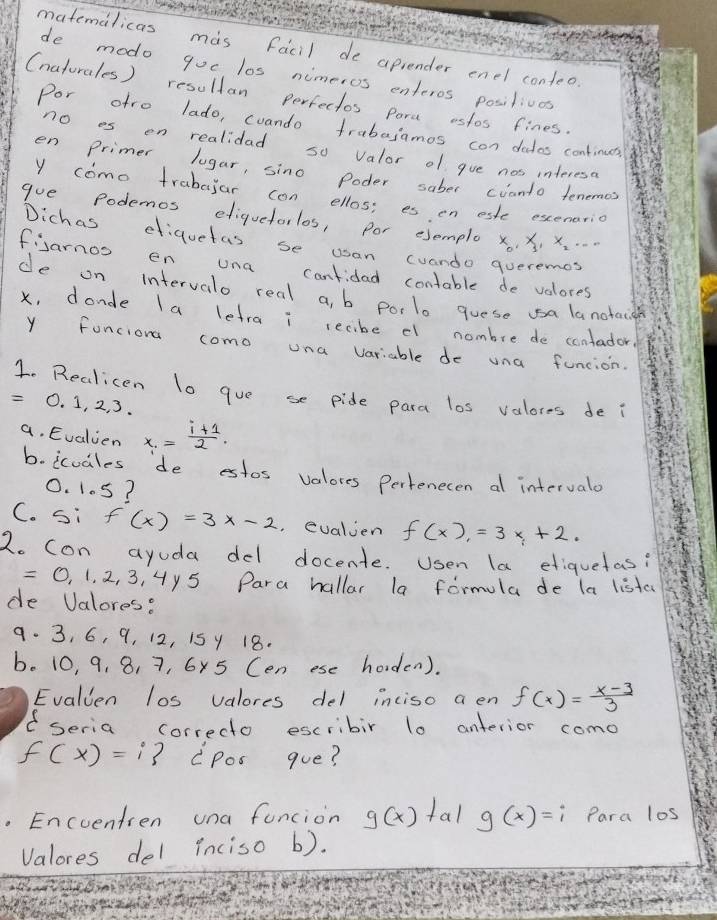 matemálicas más Fácil de aprender en el conteo.
de modo que los números enteros Positivos
(naturales) resultan Perfectos Para estos fines.
Por otro lado, cuando trabajamos con datos continuos,
no es en realidad su valor al que nos interesa
en Primer lugar, sino Poder saber cuánto tenemos
y cómo trabajar con ellos; es en este escenario
que Podemos etiquetarlos, Por ejemplo x₀, x₁, x₂...
Dichas etiquetas se usan cuando queremos
fijarnos en una cantidad contable de valores
de un intervalo real a, b Por lo que se usa la notación
x, donde la letra i recibe el nombre de contador,
y funciona como una variable de una función.
1. Realicen lo que se pide para los valores de i
= 0. 1, 2, 3.
a. Evalúen xᵢ = i+1/2.
b. ¿cuáles de estos valores Pertenecen al intervalo
0. 1.5?
C. Si f(x) = 3x - 2. evalúen f(x)ᵢ = 3xᵢ + 2.
2. Con ayuda del docente. Usen la etiquetas i
= 0, 1, 2, 3, 4 y 5 Para hallar la fórmula de la lista
de Valores:
a. 3, 6, 9, 12, 15 y 18.
b. 10, 9, 8, 7, 6 y 5 (en ese horden).
Evalúen los valores del inciso a en f(x) = x-3/3
¿seria correcto escribir lo anterior como
f(x) = i? ¿Por que?
. Encuentren una función g(x) tal g(x) = i Para los
Valores del inciso b).